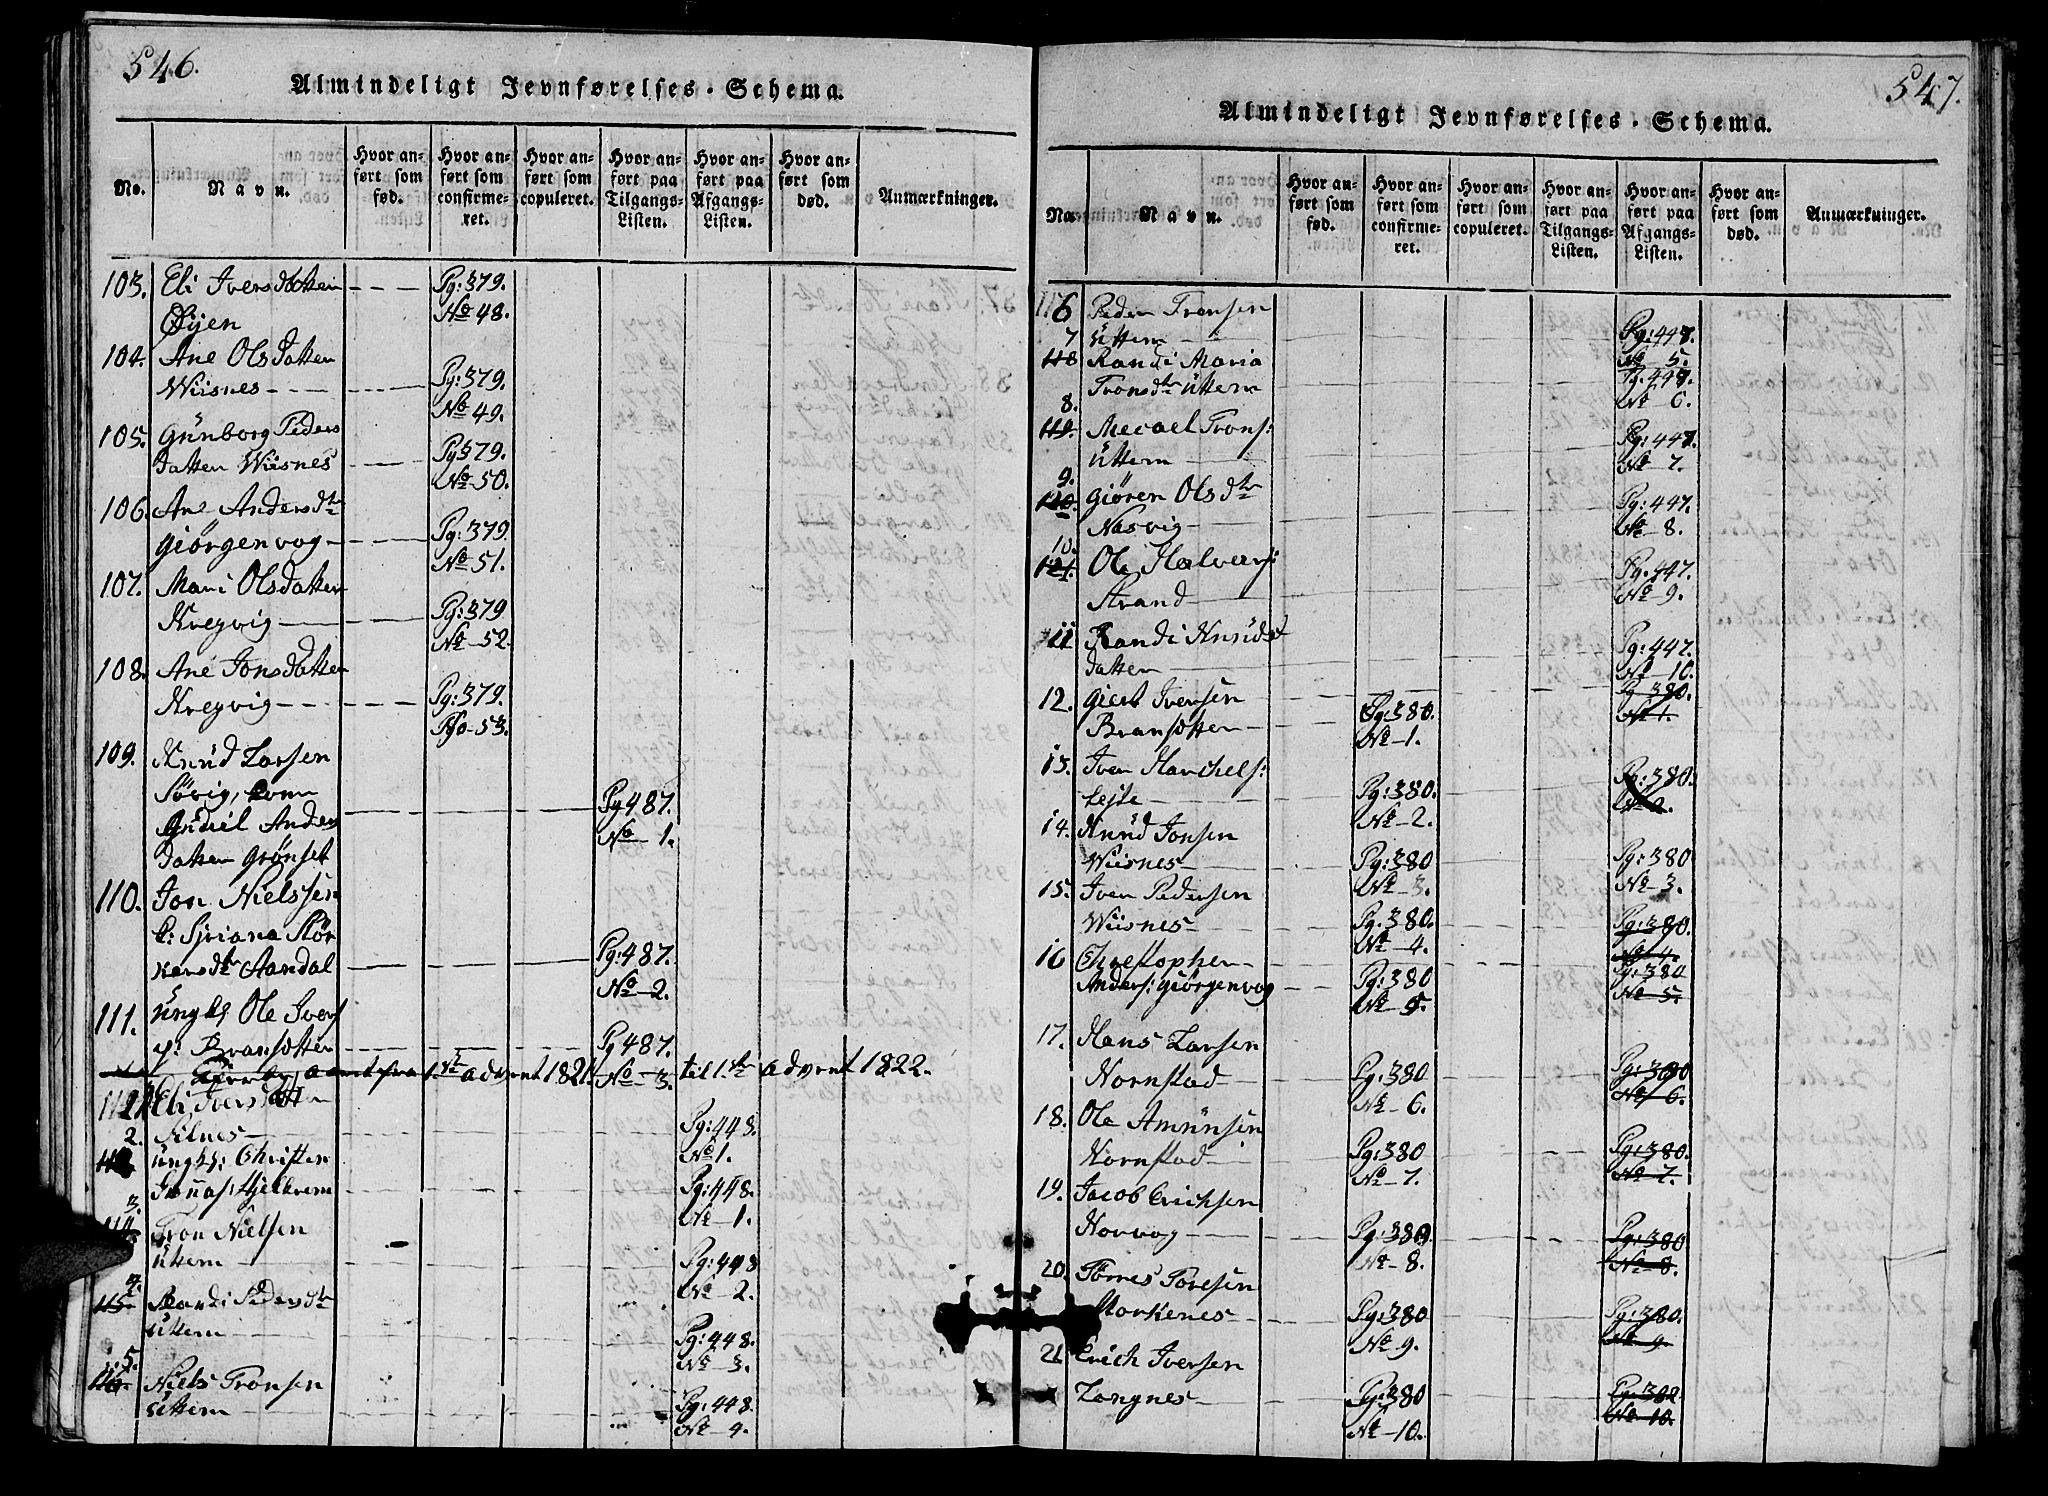 546.
Almindeligt Jevnførelses-Schema.
No.
Navn.
Hvor anført som fød.
Hvor anført som confirmeret.
Hvor anført som copuleret.
Hvor anført paa Tilgangs-Listen.
Hvor anført paa Afgangs-Listen.
Hvor anført som død.
Anmærkninger.
103. Eli Iversdatten Pg: 379.
Øÿen No 48.
104. Ane Olsdatten
Wiisnes Pg: 379.
No 49.
105. Günborg Peders
datten Wiisnes Pg 379.
No 50.
106. Ane Andersdtr
Giörgenvog Pg: 379.
No 51.
107. Mari Olsdatten
Kregvig Pg: 379
No 52.
108. Ane Jonsdatten
Kregvig Pg: 379.
No 53.
109. Knüd Larsen
Sövig, kone
Güdel Anders Pg 487.
datten Grönset No 1.
110. Jon Nielssen
k: Sÿriana Stör
kersdtr Aandal Pg: 487.
No 2.
111. Üngk: Ole Ivers
p: Bransotten Pg 487.
No 3.
fra 1ste advent 1821 til 1ste advent 1822.
112 1 Eli Iversdatten
Silnes Pg: 448.
No 1.
2. Üngk: Christen
Jonas: Hjelkrem Pg: 448.
No 1.
3.
114. Tron Nielsen
Üttem Pg: 448
No 2.
4.
115 Randi Pedersdtr
Üttem Pg: 448.
No 3.
5.
116. Niels Tronsen
Üttem Pg: 448.
No 4.
547.
Almindeligt Jevnførelses-Schema.
No.
Navn.
Hvor anført som fød.
Hvor anført som confirmeret.
Hvor anført som copuleret.
Hvor anført paa Tilgangs-Listen.
Hvor anført paa Afgangs-Listen.
Hvor anført som død.
Anmærkninger.
6 Peder Tronsen
Üttem Pg: 447.
No 5.
7
118 Randi Maria Pg. 447.
Tronsdtr Üttem No 6.
8.
119. Mecael Trons: Pg: 447.
Üttem No 7.
9.
120. Giören Olsdtr Pg: 447.
Nasvig No 8.
10.
121. Ole Halvors: Pg. 447.
Strand No 9.
11 Randi Knüds Pg: 447.
datten No 10.
12. Giert Iversen Pg 380.
Bransotten Pg: 380. No 1.
No 1.
13. Iver Harchels: Pg: 380.
Lejte Pg: 380. No 2.
No 2.
14. Knüd Jonsen
Wiisnes Pg: 380 Pg: 380
No 3. No 3.
15. Iver Pedersen
Wiisnes Pg. 380. Pg: 380.
No 4. No 4.
16 Christopher Pg: 380 Pg: 380
Anders: Giörgenvog No 5. No 5.
17. Hans Larsen
Hornstad Pg: 380 Pg: 380
No 6. No 6.
18. Ole Amünsen
Hornstad Pg: 380 Pg: 380.
No 7. No 7.
19. Jacob Erichsen
Horvog Pg: 380 Pg: 380
No 8. No 8.
20. Törres Toresen
Storkenes Pg: 380 Pg: 380.
No 9. No 9.
21 Erich Iversen
Langnes Pg: 380 Pg: 380
No 10. No 10.